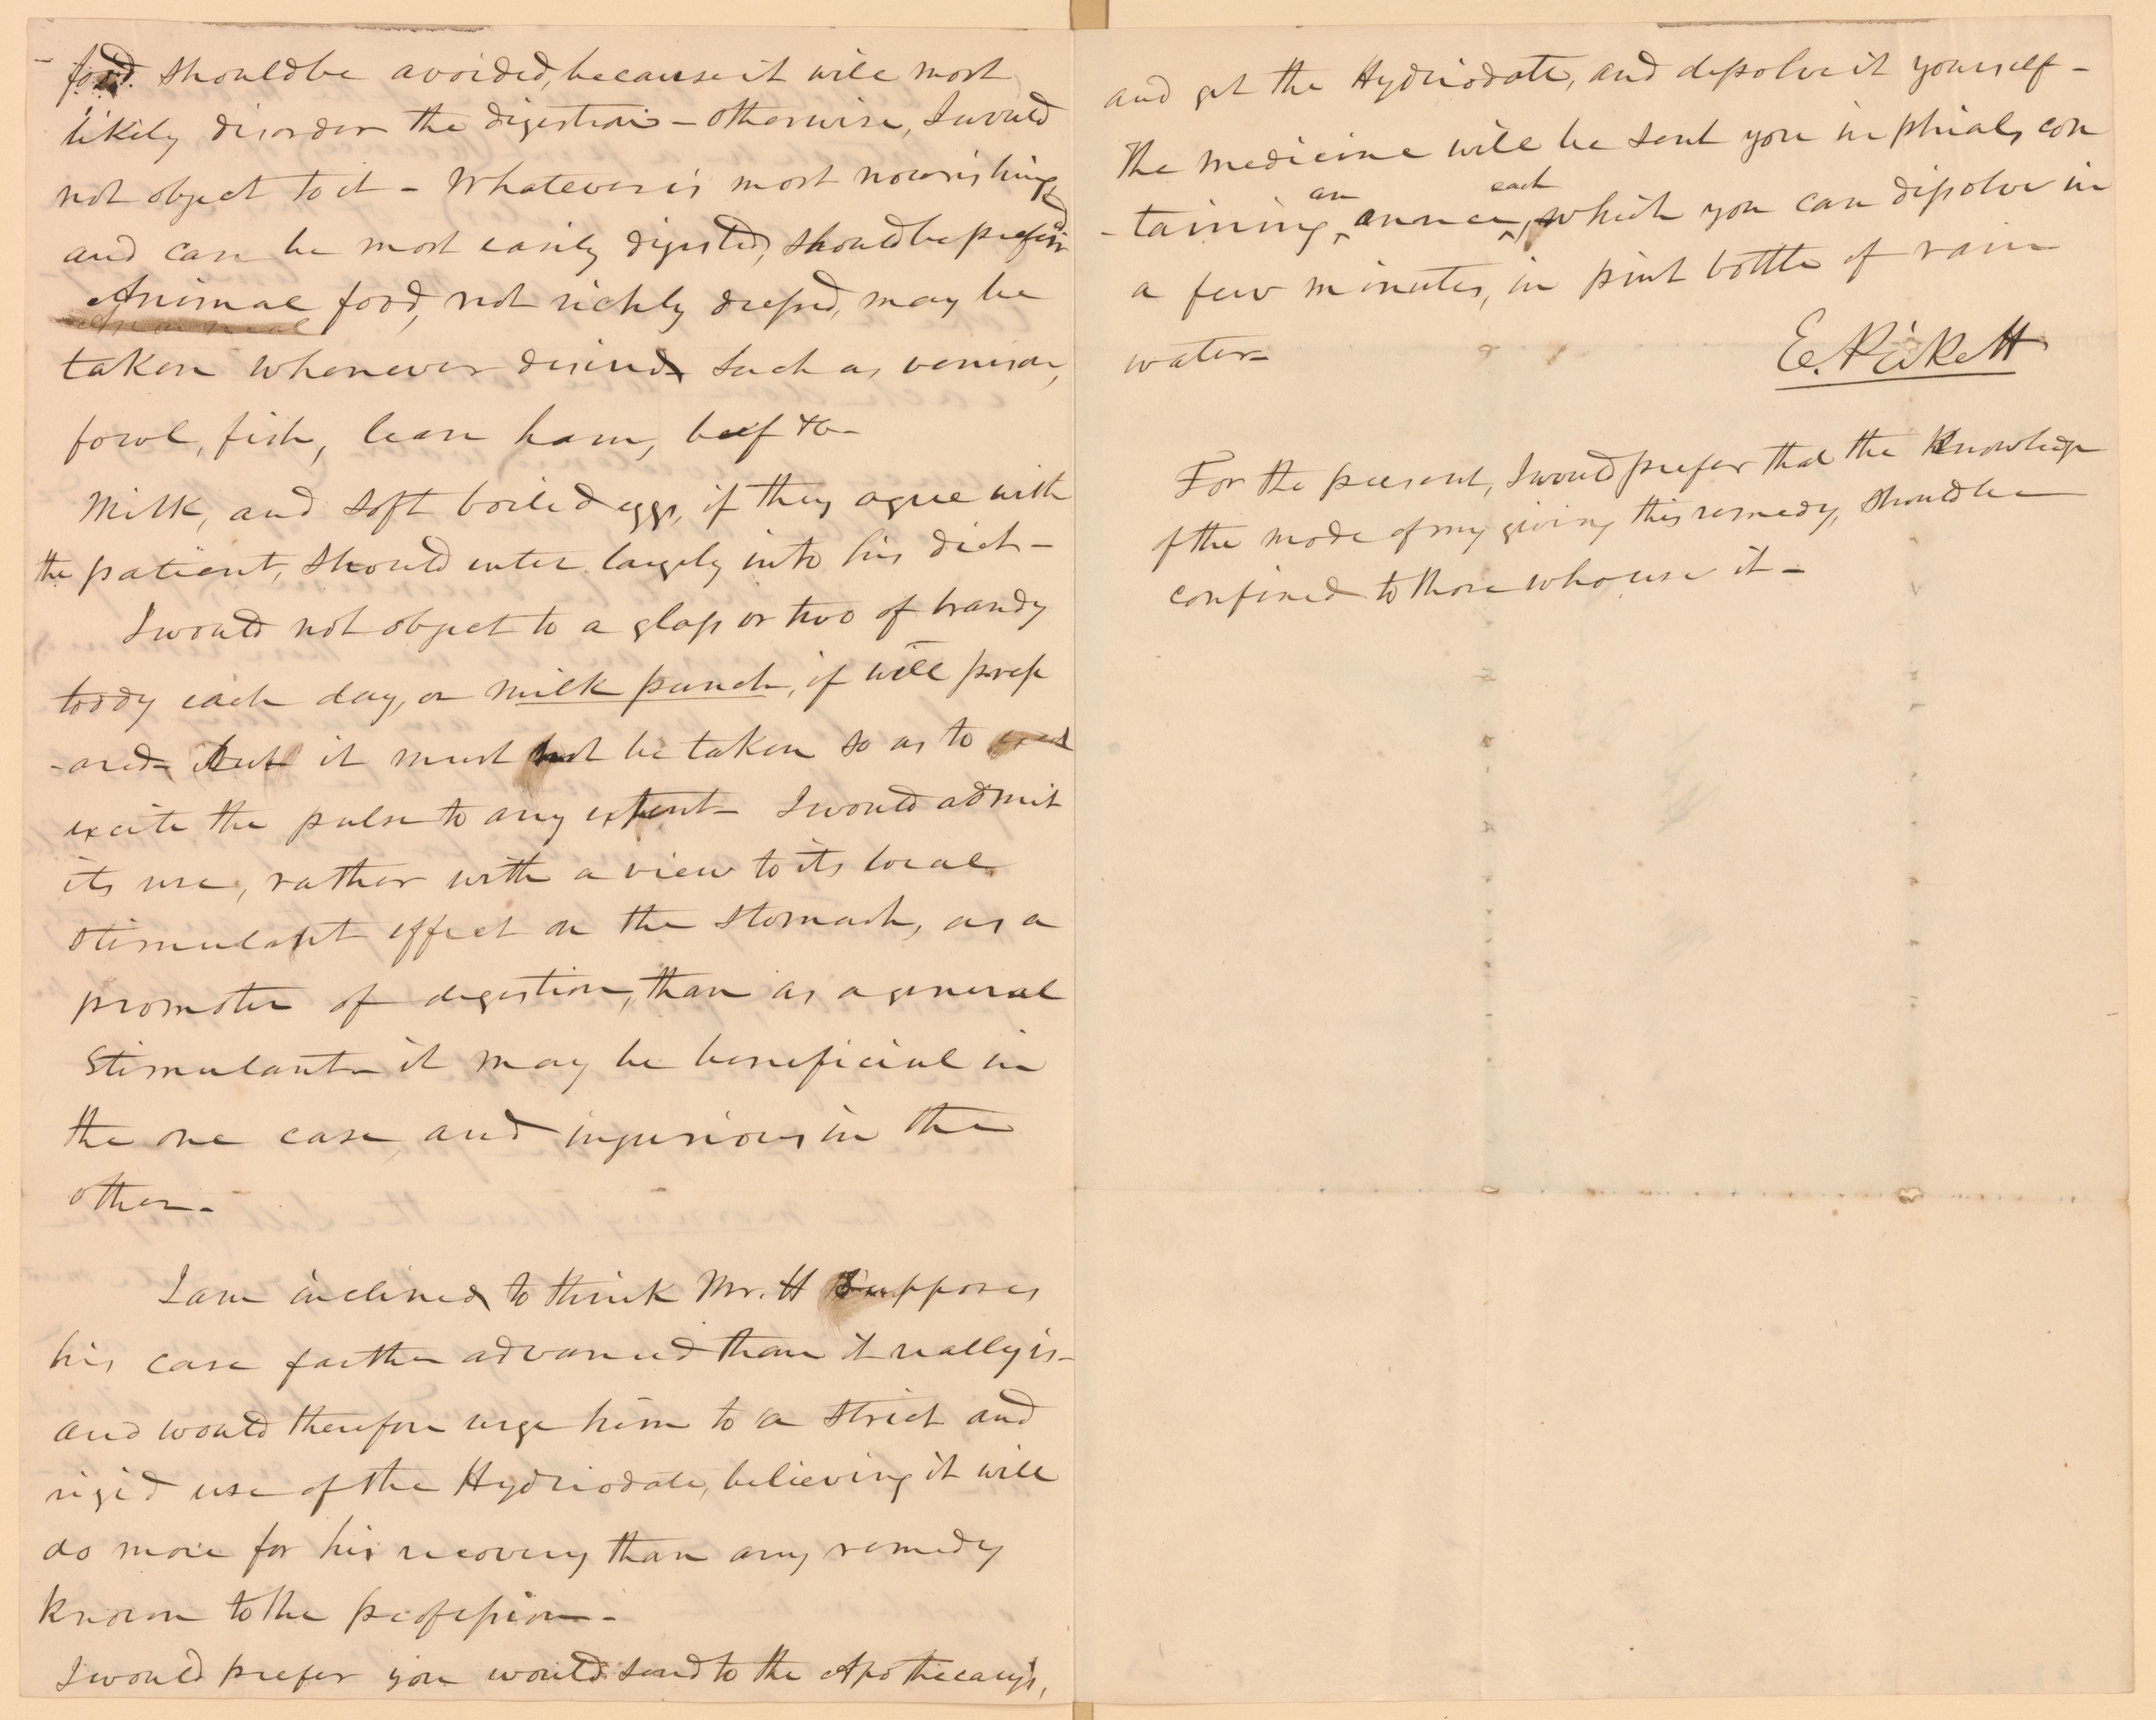 food should be avoided, because it will most
likely disorder the digestion – otherwise, I would
not object to it – Whatever is most nourishing
and can be most easily digested, should be preferd
Animal food, not richly dressed, may be
taken whenever desired such as venison,
fowl, fish, lean ham, beef &c–
Milk, and soft boiled eggs, if they agree with
the patient, should enter largely into his diet –
I would not object to a glass or two of brandy
toddy each day, or milk punch, if will prep
-ared – But it must not be taken so as to
excite the pulse to any extent – I would admit
its use, rather with a view to its local
stimulant effect on the stomach, as a
promoter of digestion, than as a general
stimulant – it may be beneficial in
the one case, and injurious in the
other –
I am inclined to think Mr. H supposes
his case farther advanced than it really is –
and would therefore urge him to a strict and
rigid use of the Hydriodate, believing it will
do more for his recovery than any remedy
known to the profession –
I would prefer you would send to the Apothecary's,
and get the Hydriodate, and dissolve it yourself –
The medicine will be sent you in phials, con
-taining an ounce each, which you can dissolve in
a few minutes, in pint bottle of rain
water –
E. Pickett
For the present, I would prefer that the Knowledge
of the mode of my giving this remedy, should be
confined to those who use it –